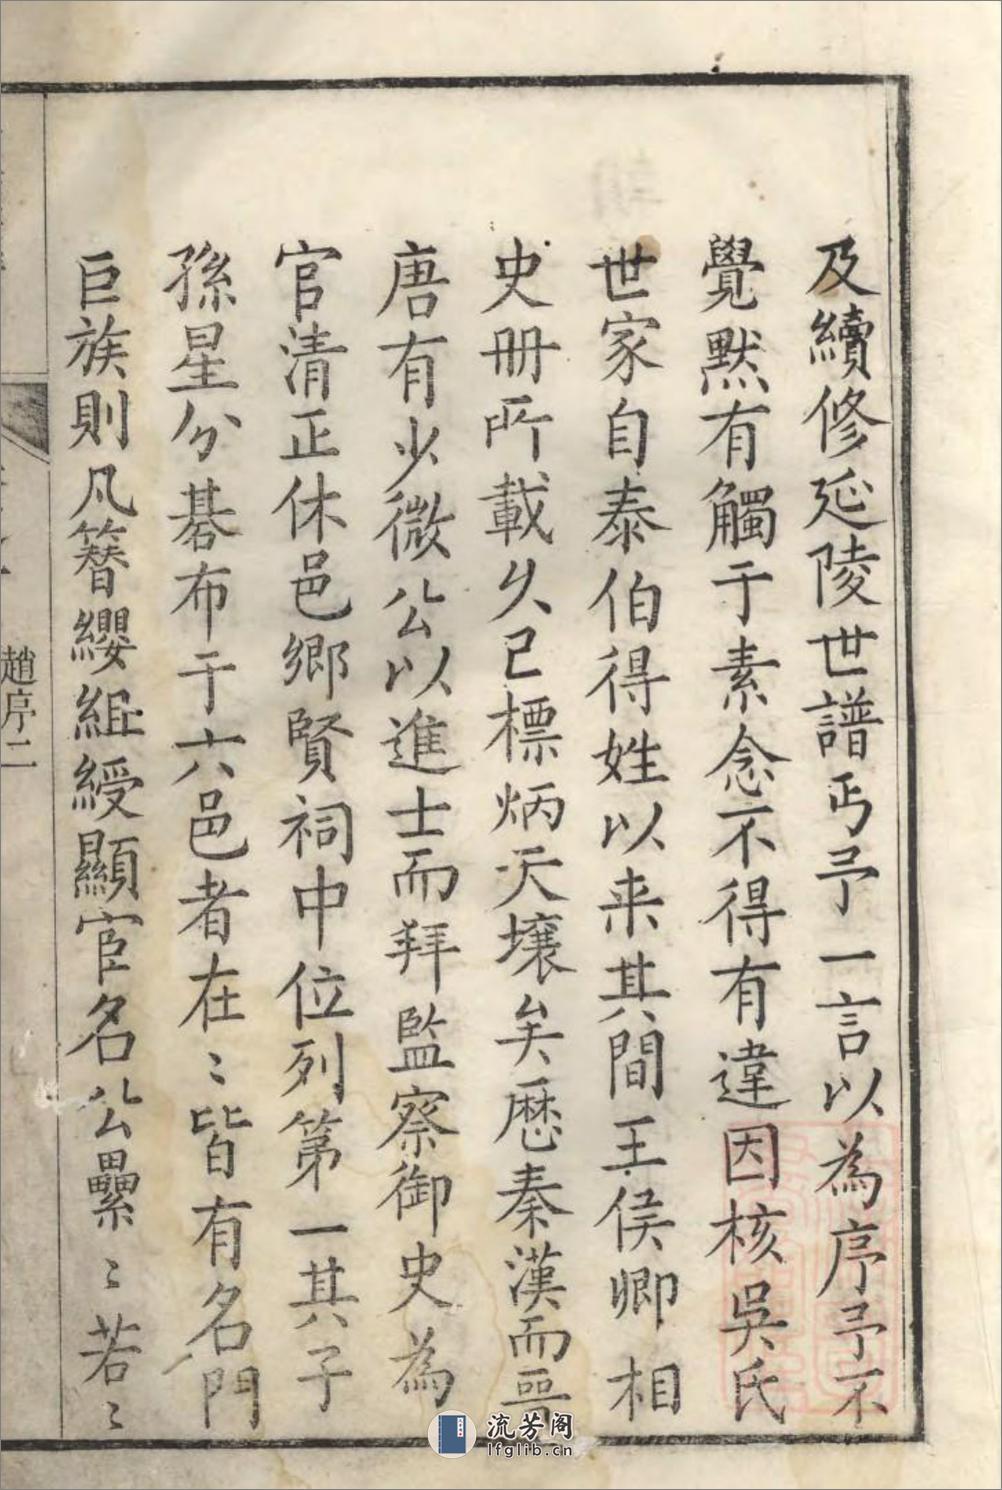 及續修延陵世譜丐予一言以為序予不
覺默有觸于素念不得有違因核吳氏
世家自泰伯得姓以来其間王侯卿相
史册所載久已標炳天壤矣歷秦漢而晉
唐有少微公以進士而拜監察御史為
官清正休邑鄉賢祠中位列第一其子
孫星分碁布于六邑者在〻皆有名門
巨族則凡簪纓組綬顯宦名公纍〻若〻
趙序二
流芳阁
lfglib.cn